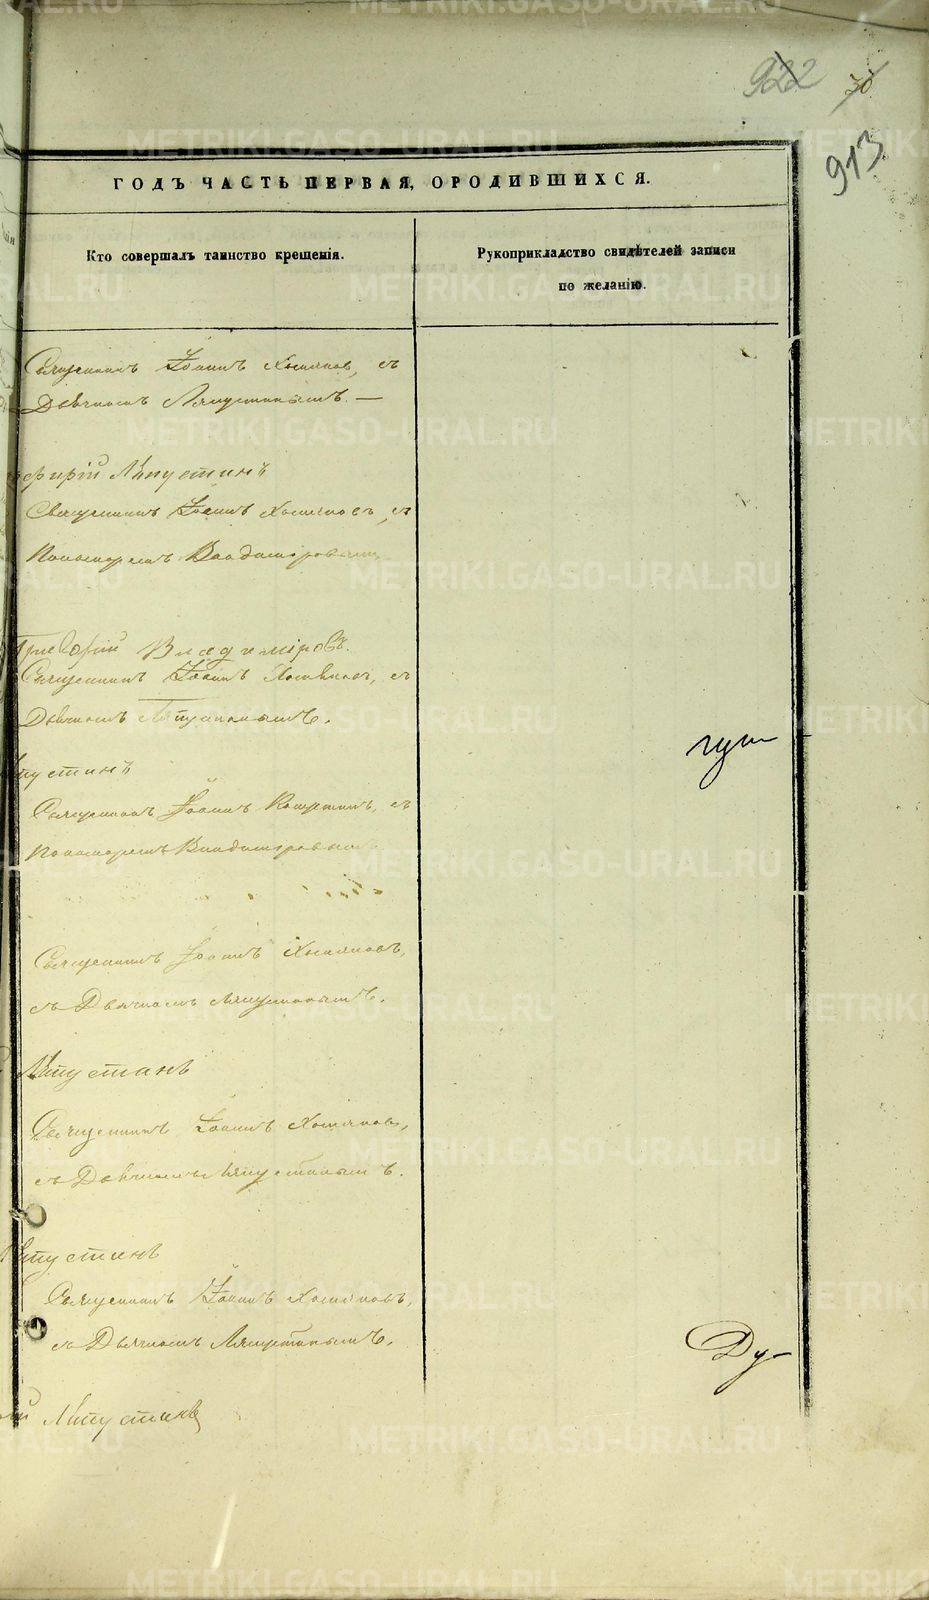 922 30
913
ГОДЪ ЧАСТЬ ПЕРВАЯ, ОРОДИВШИХСЯ.
Кто совершалъ таинство крещенія.
Рукоприкладство свидѣтелей записи
по желанію.
Священникъ Іоаннъ Хомяковъ, съ
Дьячкомъ Ляпустинымъ. —
фирій Ляпустинъ
Священникъ Іоаннъ Хомяковъ, съ
Пономаремъ Владимировымъ
Григорій Владимировъ.
Священникъ Іоаннъ Хомяковъ, съ
Дьячкомъ Ляпустинымъ.
пустинъ
Священникъ Іоаннъ съ
Пономаремъ Владимировымъ
Священникъ Іоаннъ Хомяковъ,
съ Дьячкомъ Ляпустинымъ.
Ляпустинъ
Священникъ Іоаннъ Хомяковъ,
съ Дьячкомъ Ляпустинымъ.
Ляпустинъ
Священникъ Іоаннъ Хомяковъ,
съ Дьячкомъ Ляпустинымъ.
Ду-
Ляпустинъ
METRIKI.GASO-URAL.RU